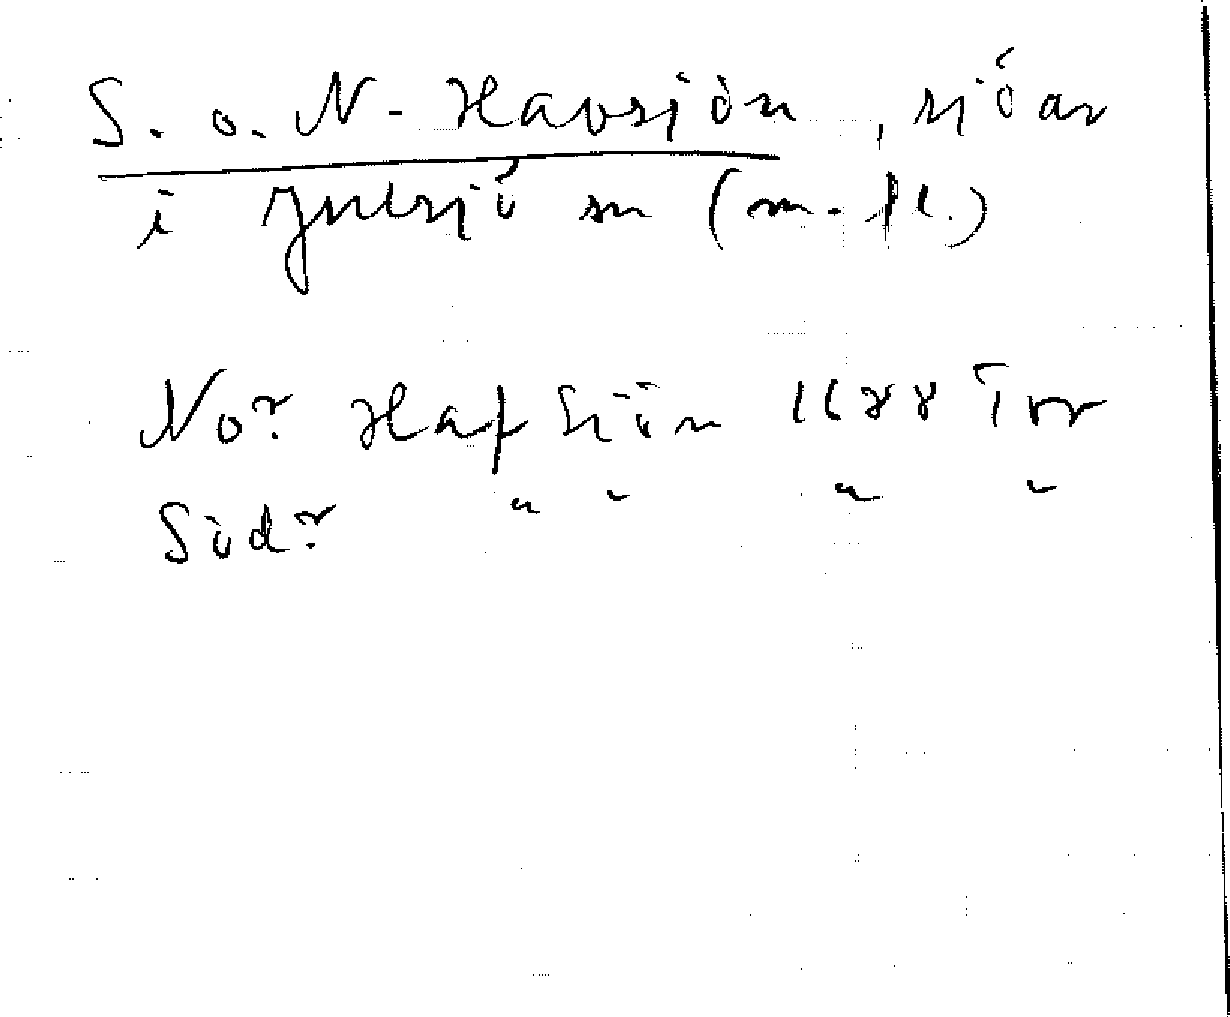 S. o. N. Havssjön, sjöar
i Gultsjö sn (m. fl.)
No? Haf Siön 1688 Tvr
Söd? " " " "